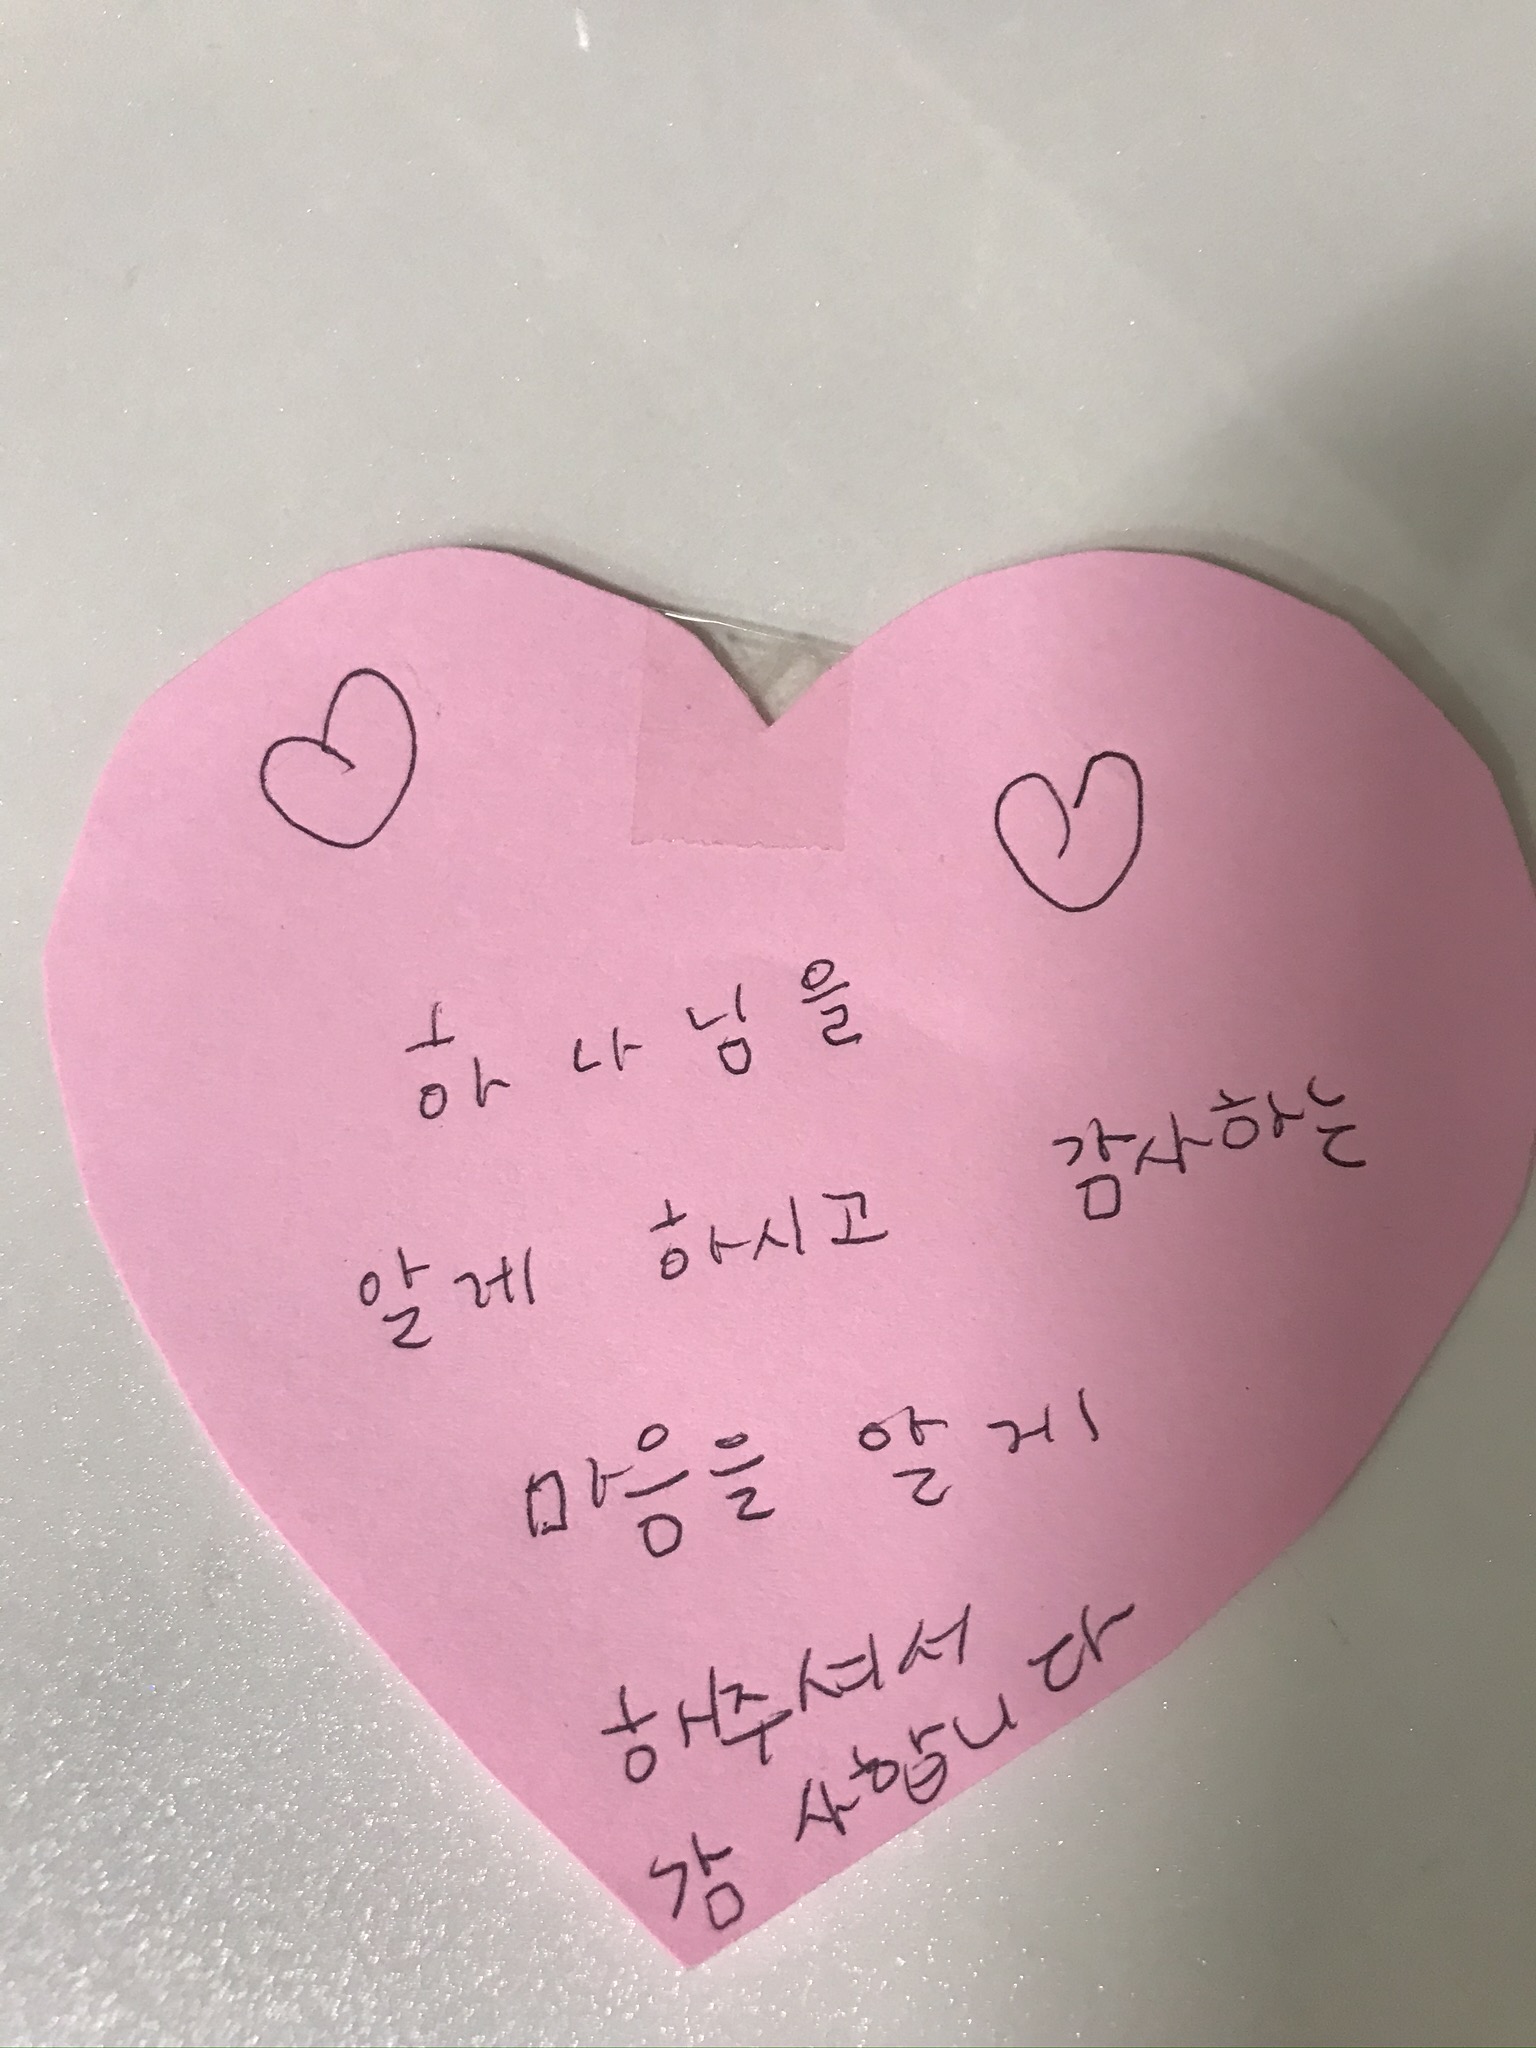 하나님을
알게 하시고 감사하는
마음을 알게
해주셔서
감사합니다